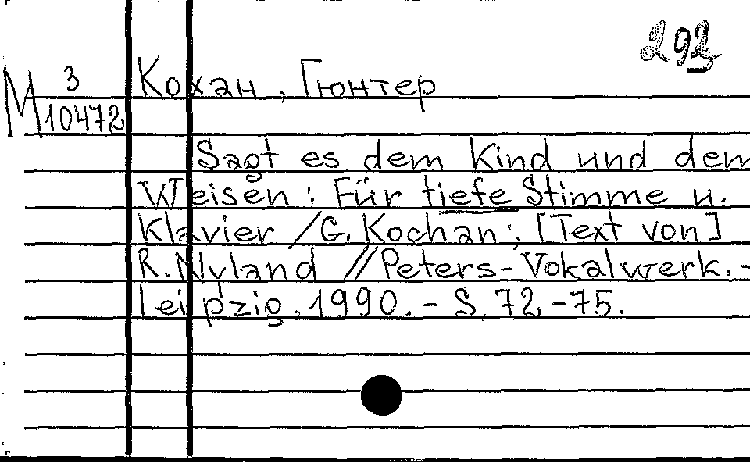 292
М 3
10472
Кохан, Гюнтер
Sagt es dem Kind und dem
Weisen: Für tiefe Stimme u.
Klavier / G. Kochan; [Text von]
R. Nyland // Peters-Vokalwerk. -
Leipzig, 1990. - S. 72-75.